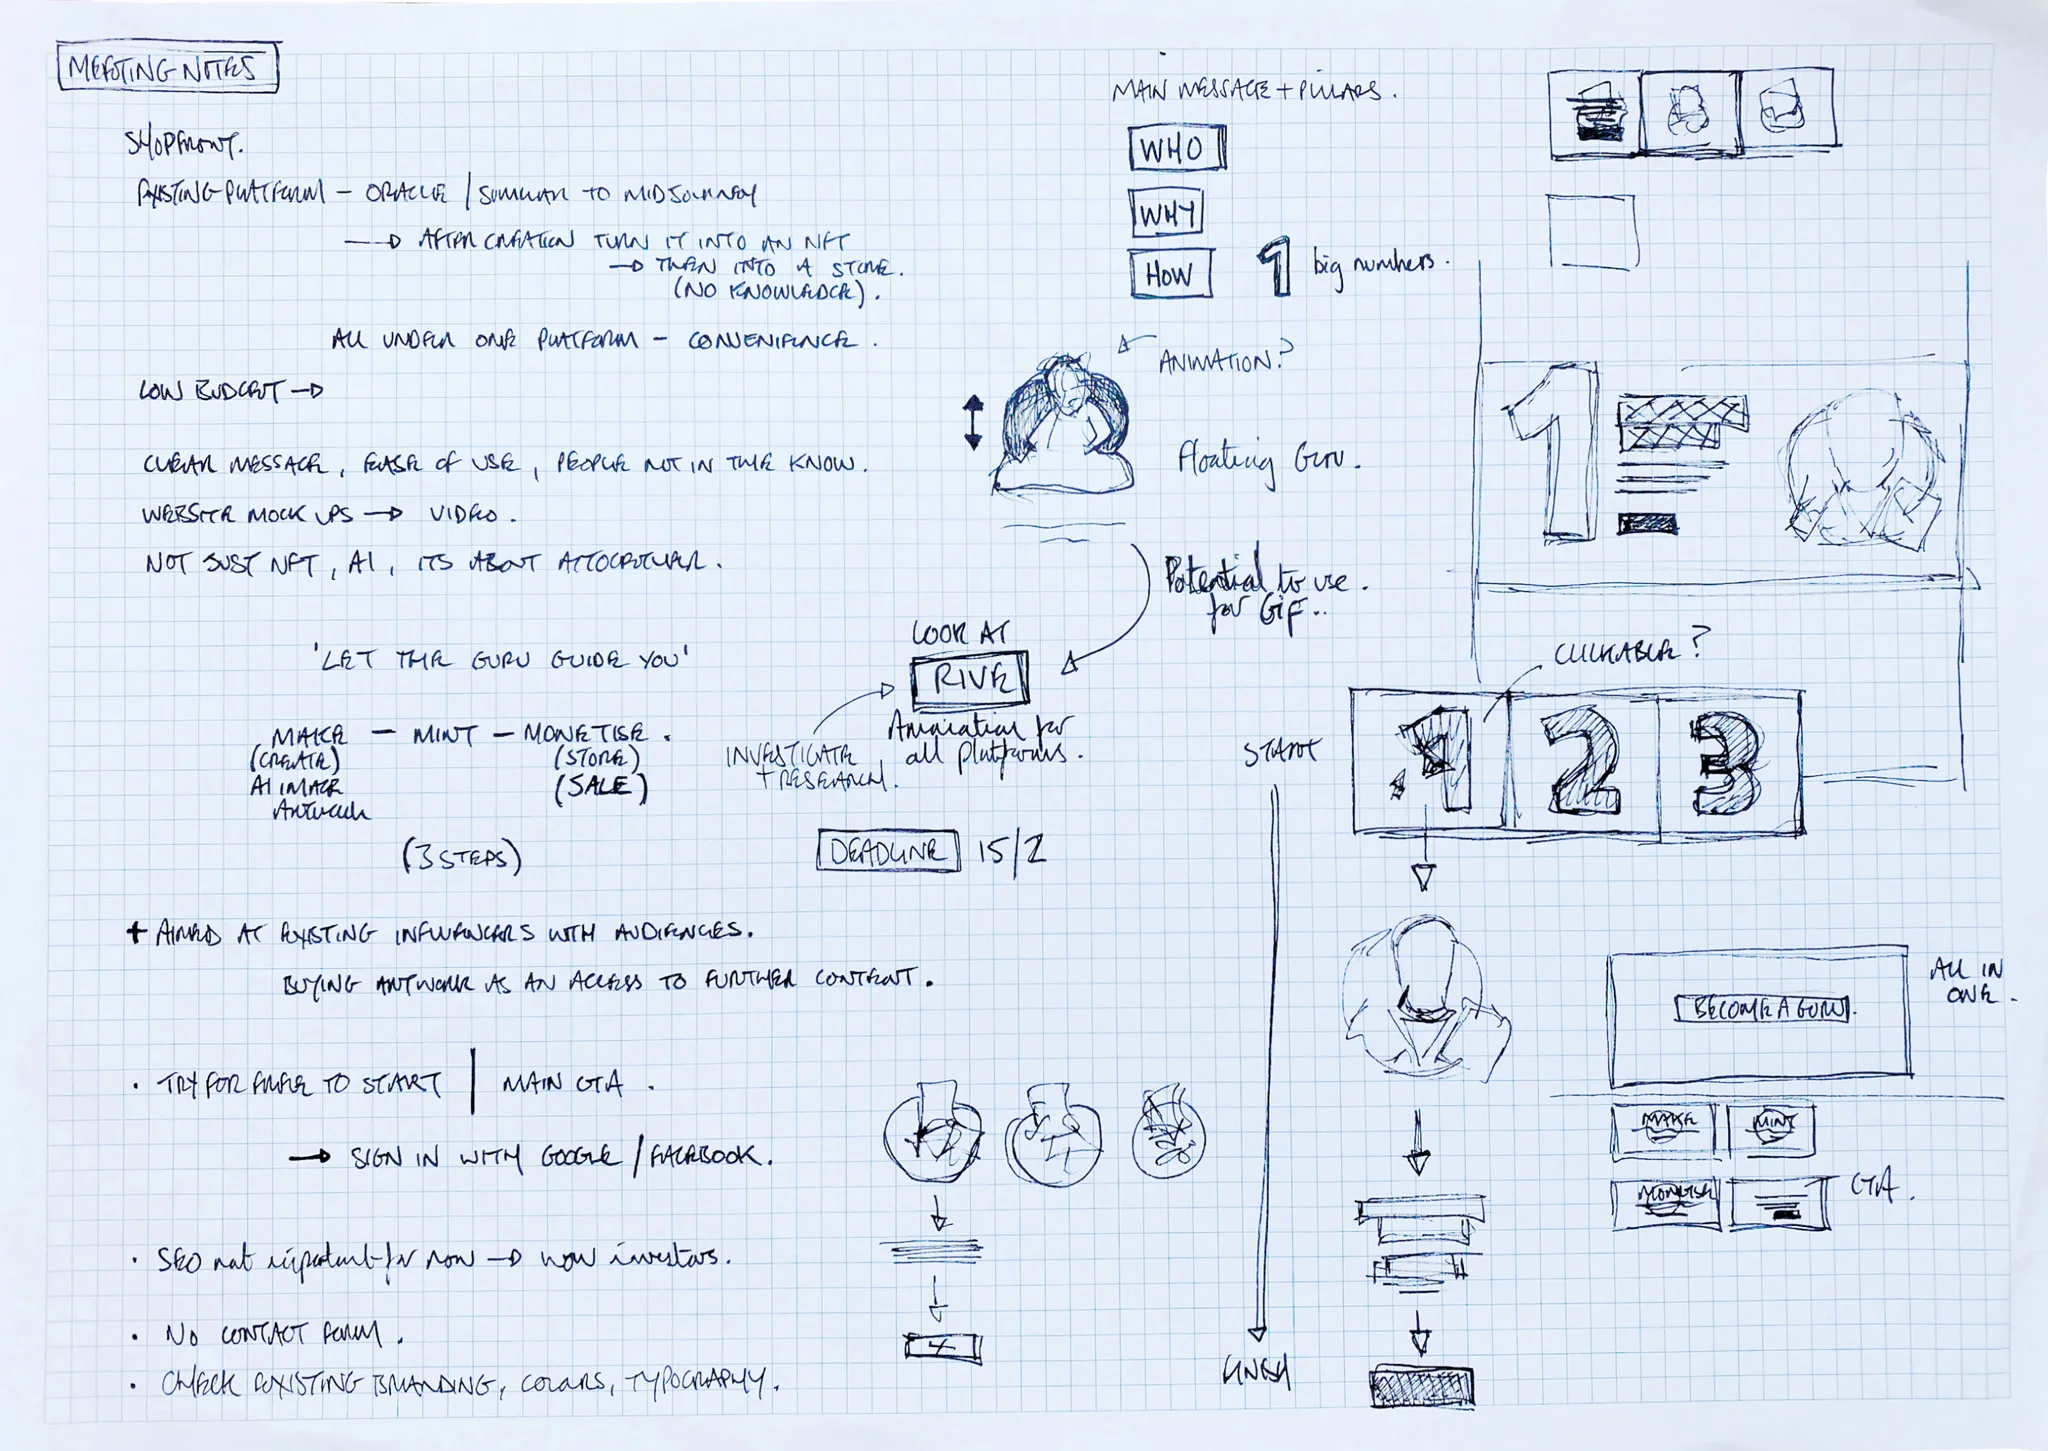 MEETING NOTES
SHOPFRONT.
EXISTING PLATFORM – ORACLE / SIMILAR TO MIDJOURNEY
→ AFTER CREATION TURN IT INTO AN NFT
→ THEN INTO A STORE.
(NO KNOWLEDGE).
ALL UNDER ONE PLATFORM – CONVENIENCE.
LOW BUDGET →
CLEAR MESSAGE, EASE OF USE, PEOPLE NOT IN THE KNOW.
WEBSITE MOCK UPS → VIDEO.
NOT JUST NFT, AI, ITS ABOUT ALTOGETHER.
'LET THE GURU GUIDE YOU'
MAKE – MINT – MONETISE.
(CREATE) (STORE)
AI IMAGE (SALE)
Artwork
(3 STEPS)
+ AIMED AT EXISTING INFLUENCERS WITH AUDIENCES.
BUYING ARTWORK AS AN ACCESS TO FURTHER CONTENT.
· TRY FOR FREE TO START | MAIN CTA.
→ SIGN IN WITH GOOGLE / FACEBOOK.
· SEO not important for now → now investors.
· NO CONTACT FORM.
· CHECK EXISTING BRANDING, COLORS, TYPOGRAPHY.
MAIN MESSAGE + PILLARS.
WHO
WHY
HOW
1 big numbers.
ANIMATION?
Floating Guru.
Potential to use.
for Gif..
LOOK AT
RIVE
Animation for
all platforms.
INVESTIGATE
+ RESEARCH.
DEADLINE 15/2
1
CLICKABLE?
START
1 2 3
FINISH
BECOME A GURU.
ALL IN
ONE.
MAKE MINT
MONETISE
CTA.